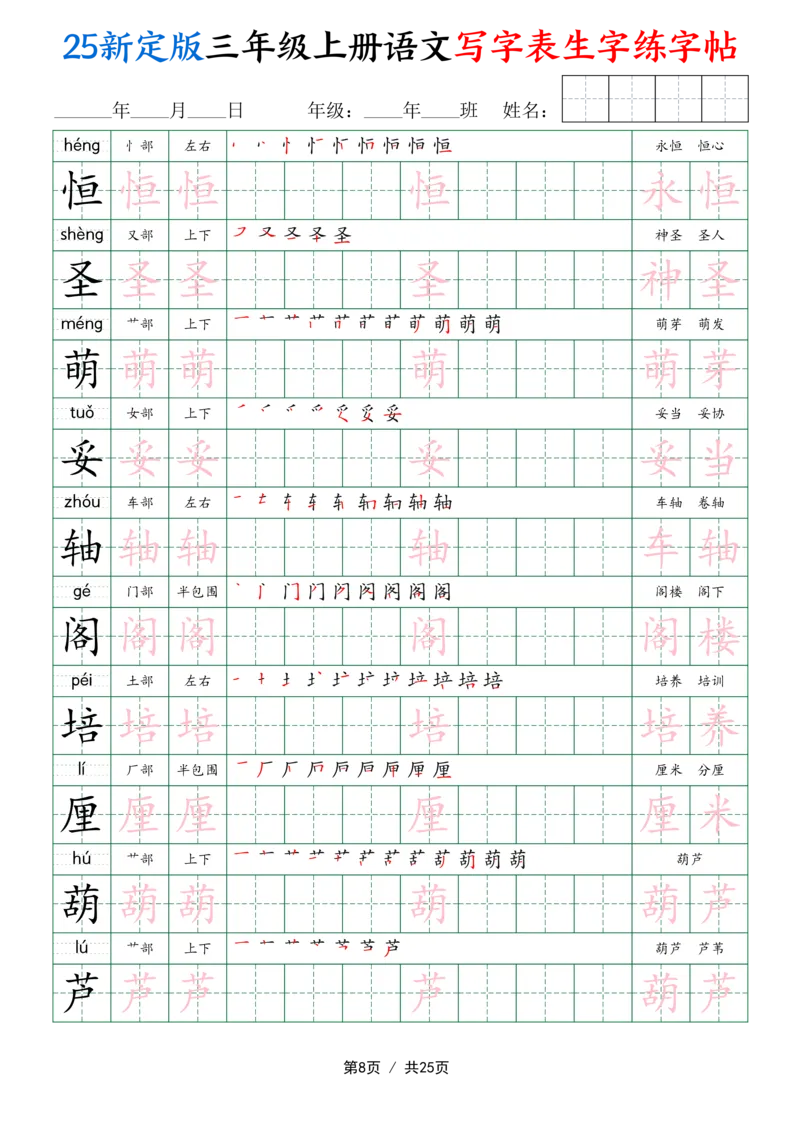 25新定版三年级上册语文写字表生字练字帖
______年____月____日 年级：____年____班 姓名：
héng 忄部 左右 恒 永恒 恒心
恒 恒 恒 恒 永 恒
shèng 又部 上下 フ 又 圣 神圣 圣人
圣 圣 圣 圣 神 圣
méng 艹部 上下 一 艹 萌 萌 萌 萌芽 萌发
萌 萌 萌 萌 萌 芽
tuǒ 女部 上下 妥 妥 妥 妥当 妥协
妥 妥 妥 妥 妥 当
zhóu 车部 左右 一 车 轴 轴 车轴 卷轴
轴 轴 轴 轴 车 轴
gé 门部 半包围 门 阁 阁 阁楼 阁下
阁 阁 阁 阁 阁 楼
péi 土部 左右 一 十 土 培 培 培养 培训
培 培 培 培 培 养
lí 厂部 半包围 一 厂 厘 厘 厘米 分厘
厘 厘 厘 厘 厘 米
hú 艹部 上下 一 艹 葫 葫 葫 葫芦
葫 葫 葫 葫 葫 芦
lú 艹部 上下 一 艹 芦 葫芦 芦苇
芦 芦 芦 芦 葫 芦
第8页 / 共25页